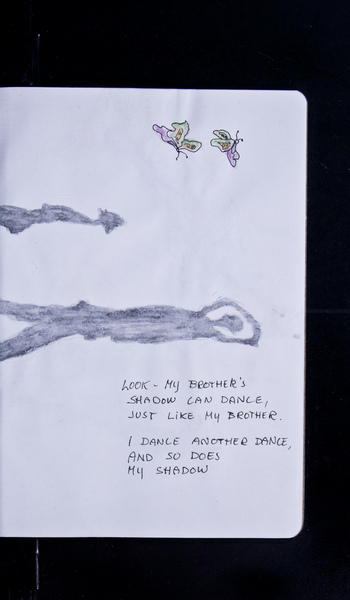 LOOK - MY BROTHER'S
SHADOW CAN DANCE,
JUST LIKE MY BROTHER.
I DANCE ANOTHER DANCE,
AND SO DOES
MY SHADOW